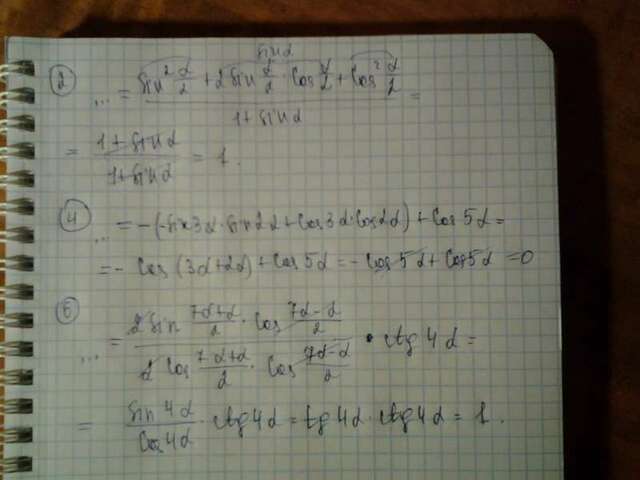 sinα
② ... = (sin² α/2 + 2 sin α/2 · cos α/2 + cos² α/2) / (1 + sinα) =
= (1 + sinα) / (1 + sinα) = 1.
④ ... = -(-sin3α·sin2α + cos3α·cos2α) + cos5α =
= - cos(3α+2α) + cos5α = - cos5α + cos5α = 0
⑥ ... = (2 sin (7α+α)/2 · cos (7α-α)/2) / (2 cos (7α+α)/2 · cos (7α-α)/2) · ctg 4α =
= sin4α / cos4α · ctg4α = tg4α · ctg4α = 1.